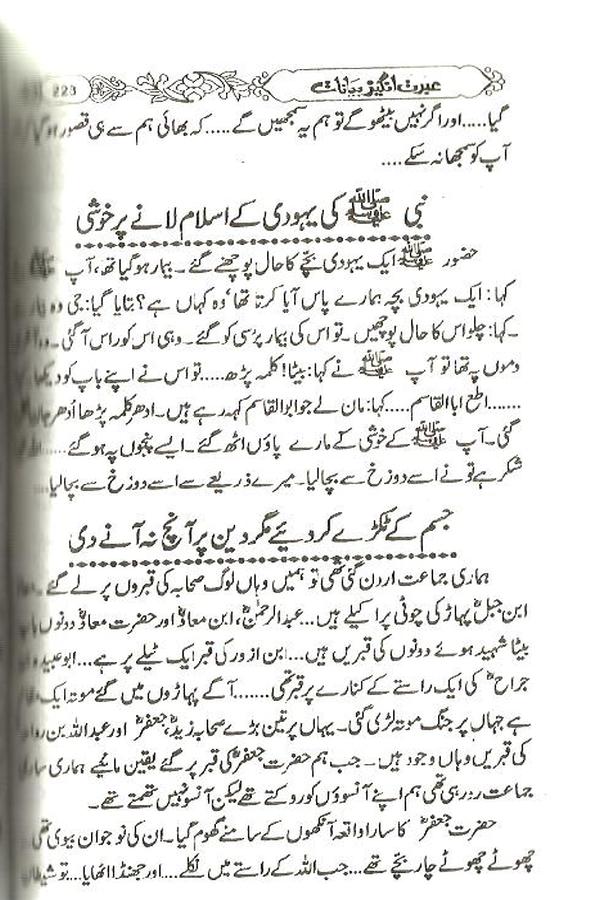 عبرت انگیز بیانات
223
گیا.....اور اگر نہیں بیٹھو گے تو ہم یہ سمجھیں گے.....کہ بھائی ہم سے ہی قصور ہو گیا
آپ کو سمجھا نہ سکے....
نبی ﷺ کی یہودی کے اسلام لانے پر خوشی
حضور ﷺ ایک یہودی بچے کا حال پوچھنے گئے۔ بیمار ہو گیا تھا، آپ ﷺ
کہا: ایک یہودی بچہ ہمارے پاس آیا کرتا تھا' وہ کہاں ہے؟ بتایا گیا: جی وہ بیمار
۔کہا: چلو اس کا حال پوچھیں۔ تو اس کی بیمار پرسی کو گئے۔ وہی اس کو راس آ گئی۔ وہ آخری
دموں پہ تھا تو آپ ﷺ نے کہا: بیٹا! کلمہ پڑھ.....تو اس نے اپنے باپ کو دیکھا
.......اطع ابا القاسم.....کہا: مان لے جو ابو القاسم کہہ رہے ہیں۔ ادھر کلمہ پڑھا اُدھر جان
گئی۔ آپ ﷺ کے خوشی کے مارے پاؤں اٹھ گئے۔ ایسے پنجوں پہ ہو گئے.....
شکر ہے تو نے اسے دوزخ سے بچا لیا۔ میرے ذریعے سے اسے دوزخ سے بچا لیا....
جسم کے ٹکڑے کر دئیے مگر دین پر آنچ نہ آنے دی
ہماری جماعت اردن گئی تھی تو ہمیں وہاں لوگ صحابہ کی قبروں پر لے گئے۔
ابن جبلؓ پہاڑ کی چوٹی پر اکیلے ہیں...عبدالرحمٰنؓ، ابن معاذؓ اور حضرت معاذؓ دونوں باپ
بیٹا شہید ہوئے دونوں کی قبریں ہیں...ابن ازور کی قبر ایک ٹیلے پر ہے...ابو عبیدہ
جراحؓ کی ایک راستے کے کنارے پر قبر تھی.......آگے پہاڑوں میں گئے موتہ ایک
ہے جہاں پر جنگ موتہ لڑی گئی۔ یہاں پر تین بڑے صحابہ زیدؓ، جعفرؓ اور عبداللہ بن رواحہ
کی قبریں وہاں وجود ہیں۔ جب ہم حضرت جعفرؓ کی قبر پر گئے یقین مانیے ہماری ساری
جماعت رو رہی تھی ہم اپنے آنسوؤں کو روکتے تھے لیکن آنسو نہیں تھمتے تھے۔
حضرت جعفرؓ کا سارا واقعہ آنکھوں کے سامنے گھوم گیا۔ ان کی نوجوان بیوی تھی
چھوٹے چھوٹے چار بچے تھے...جب اللہ کے راستے میں نکلے....اور جھنڈا اٹھایا....تو شیطان